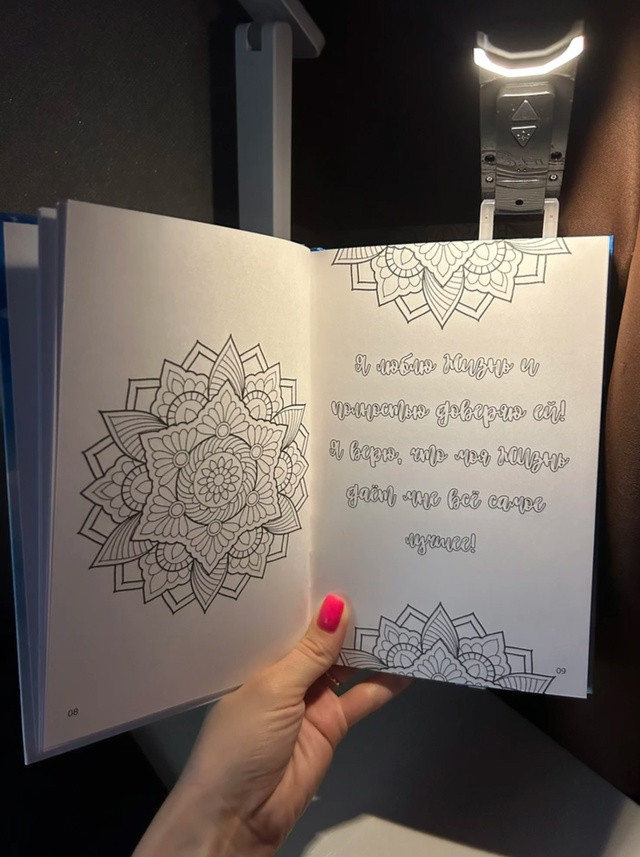 Я люблю Жизнь и
полностью доверяю ей!
Я верю, что моя Жизнь
даёт мне всё самое
лучшее!
08
09